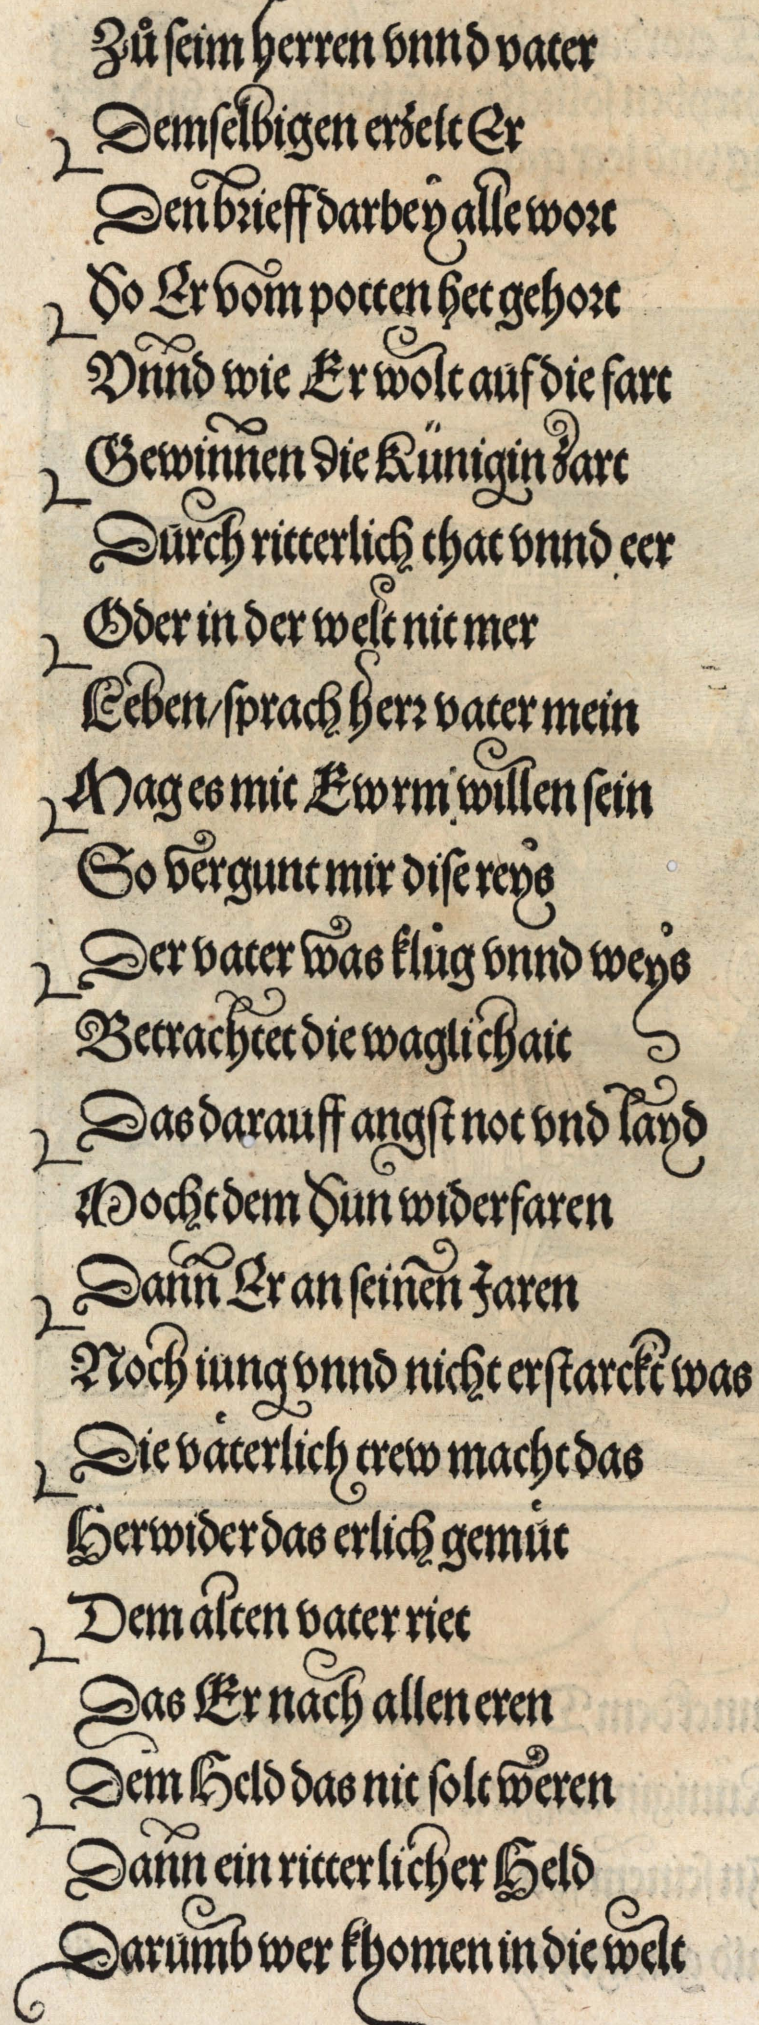 Zuͦ seim herren vnnd vater
Demselbigen erzelt Er
Den brieff darbey alle wort
So Er vom potten het gehort
Vnnd wie Er wolt auf die fart
Gewinnen die Künigin zart
Durch ritterlich that vnnd eer
Oder in der welt nit mer
Leben/ sprach herr vater mein
Mag es mit Ewrm willen sein
So vergunt mir dise reys
Der vater was kluͦg vnnd weys
Betrachtet die waglichait
Das darauff angst not vnd layd
Mocht dem Sun widerfaren
Dann Er an seinen Jaren
Noch iung vnnd nicht erstarckt was
Die vaͤterlich trew macht das
Herwider das erlich gemuͤt
Dem alten vater riet
Das Er nach allen eren
Dem Held das nit solt weren
Dann ein ritterlicher Held
Darumb wer khomen in die welt